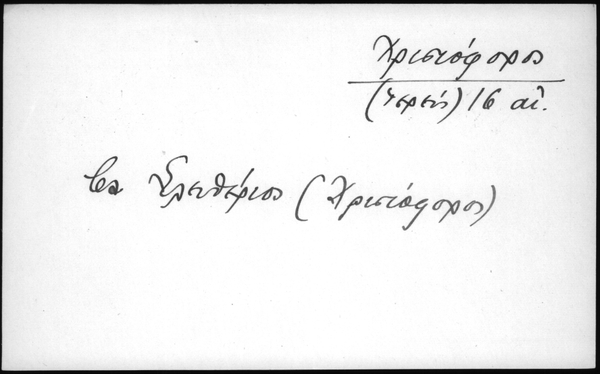 Χριστόφορος
(Ἱερεύς) 16 αἰ.
βλ Ἐλευθέριος (Χριστόφορος)